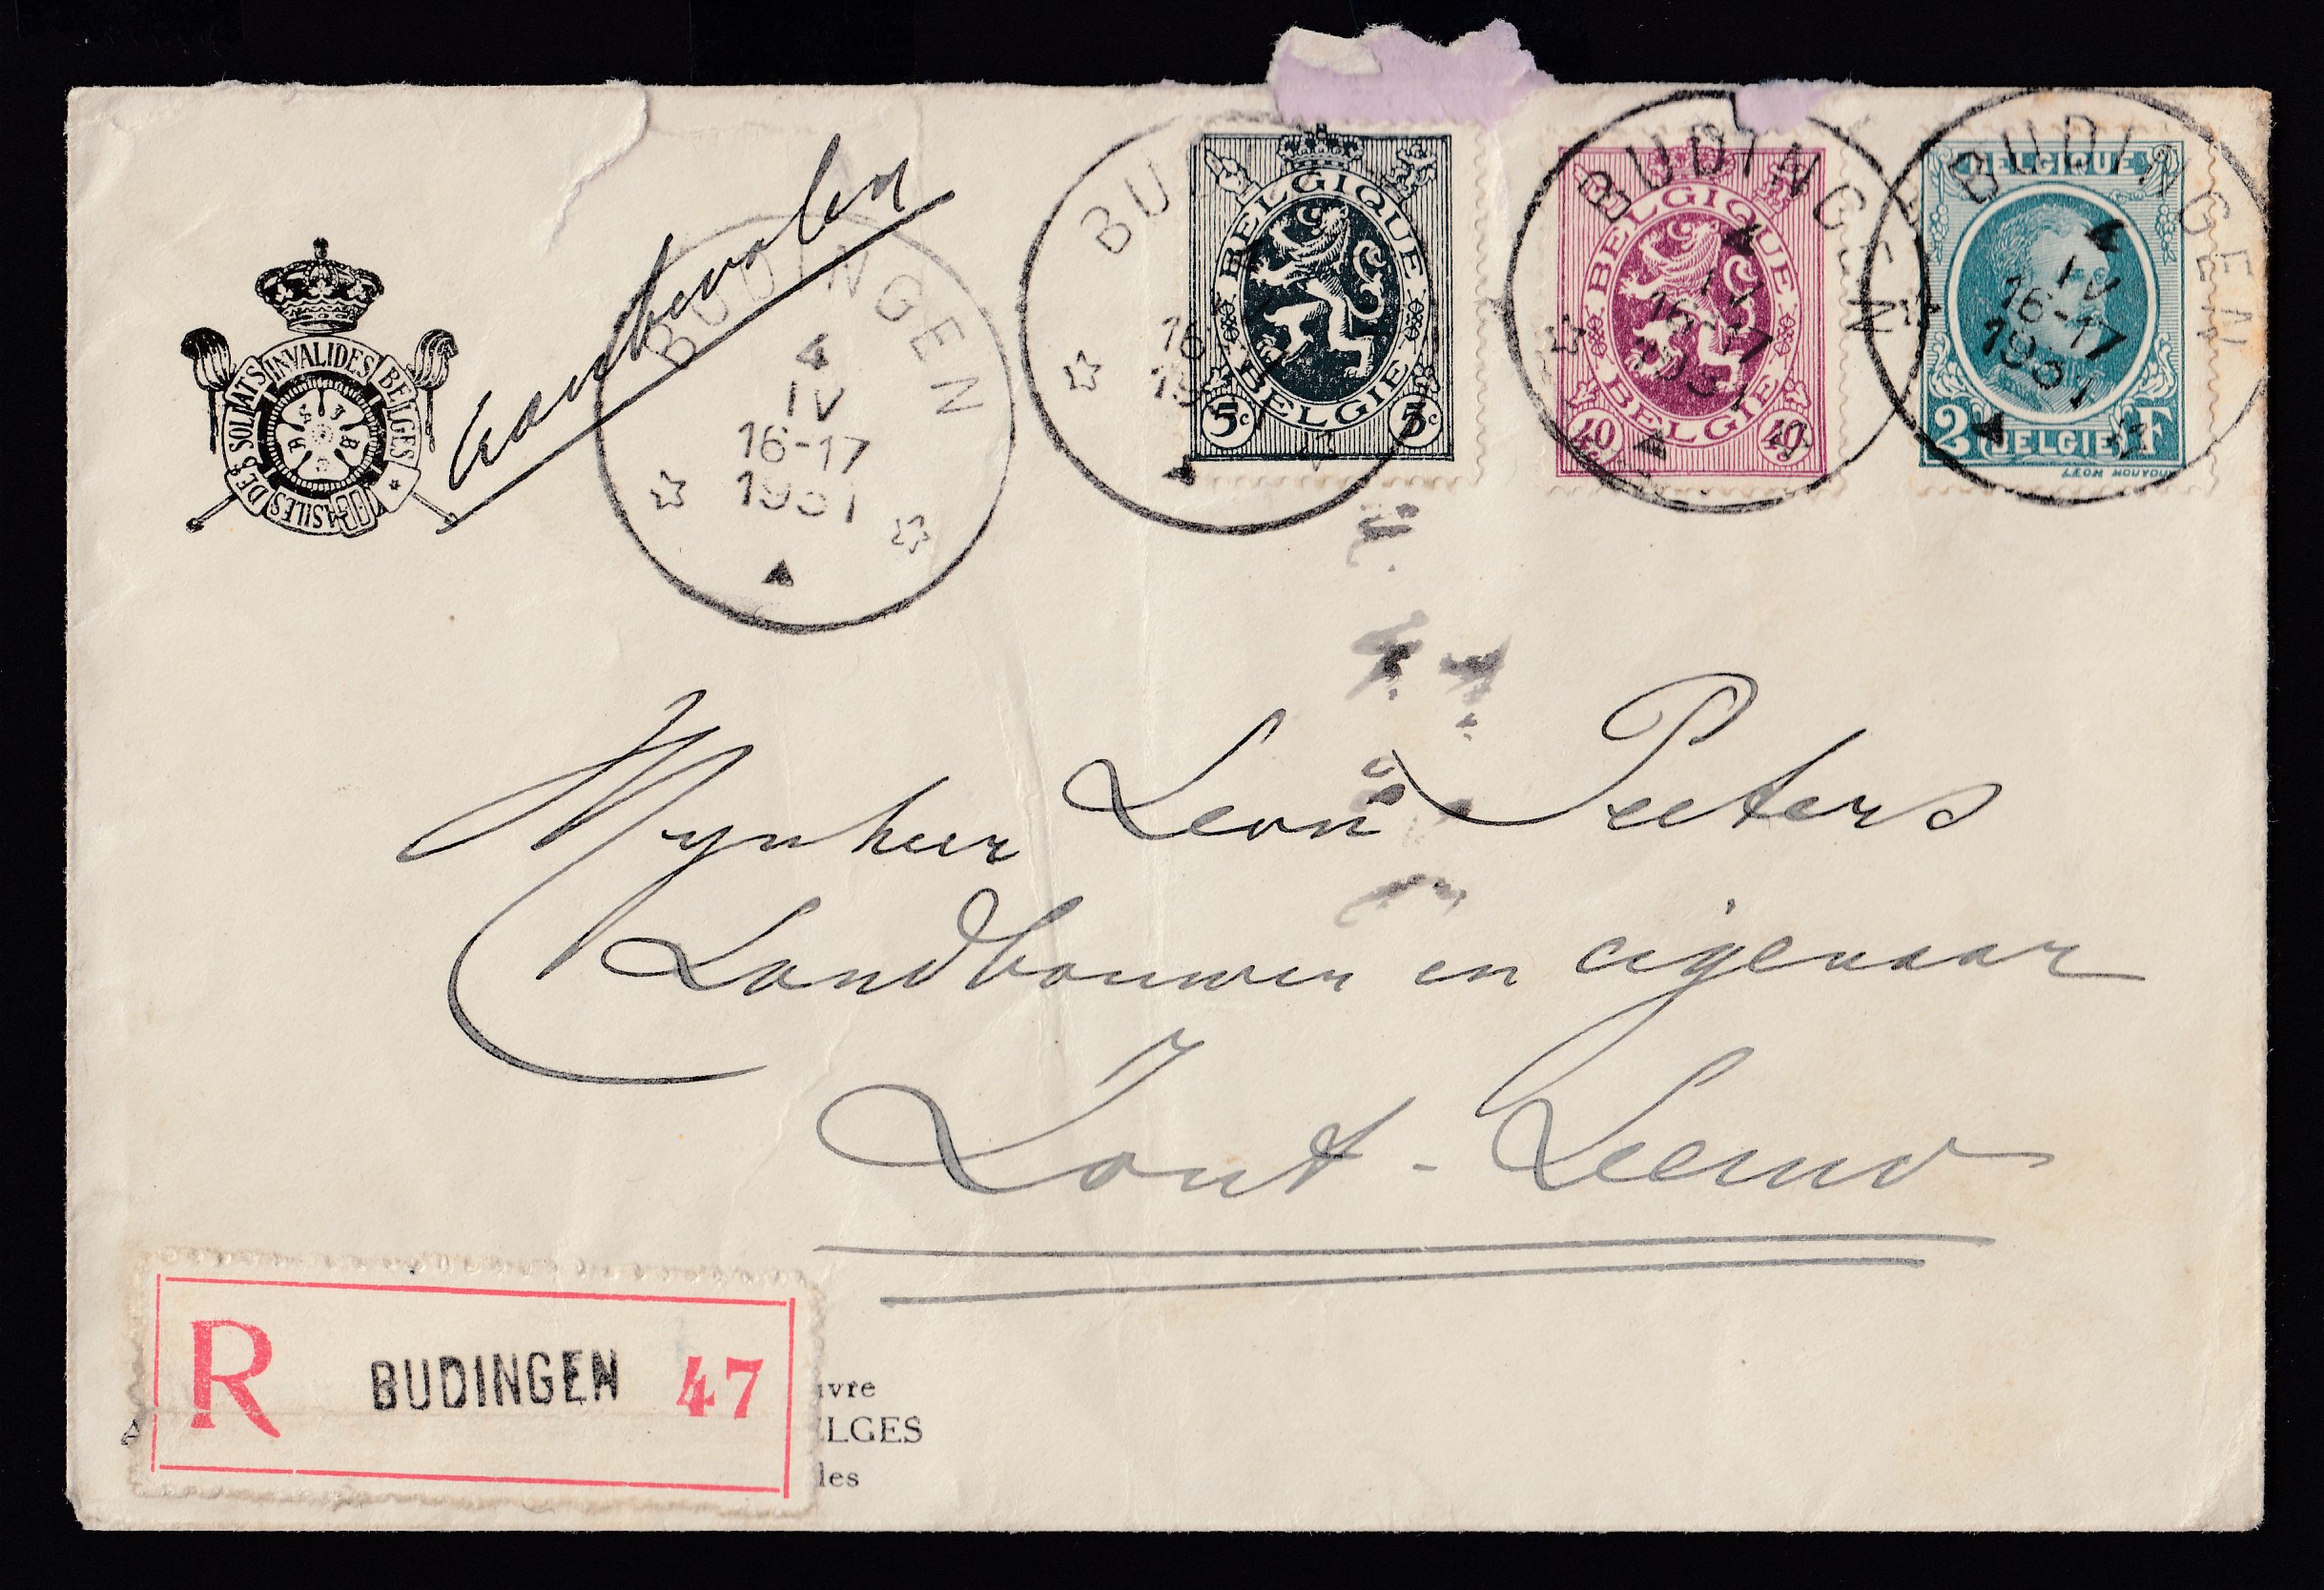 Aanbevolen
ASILES DES SOLDATS INVALIDES BELGES
BUDINGEN
4
IV
16-17
1931
BU
16
19
BELGIQUE
BELGIE
5c 5c
BUDINGEN
4
IV
16-17
1931
BELGIQUE
BELGIE
40c 40c
BUDINGEN
4
IV
16-17
1931
BELGIQUE
2 BELGIE F
Mynheer Leon Peeters
Landbouwer en eigenaar
Zout-Leeuw
R BUDINGEN 47
uvre
ELGES
les